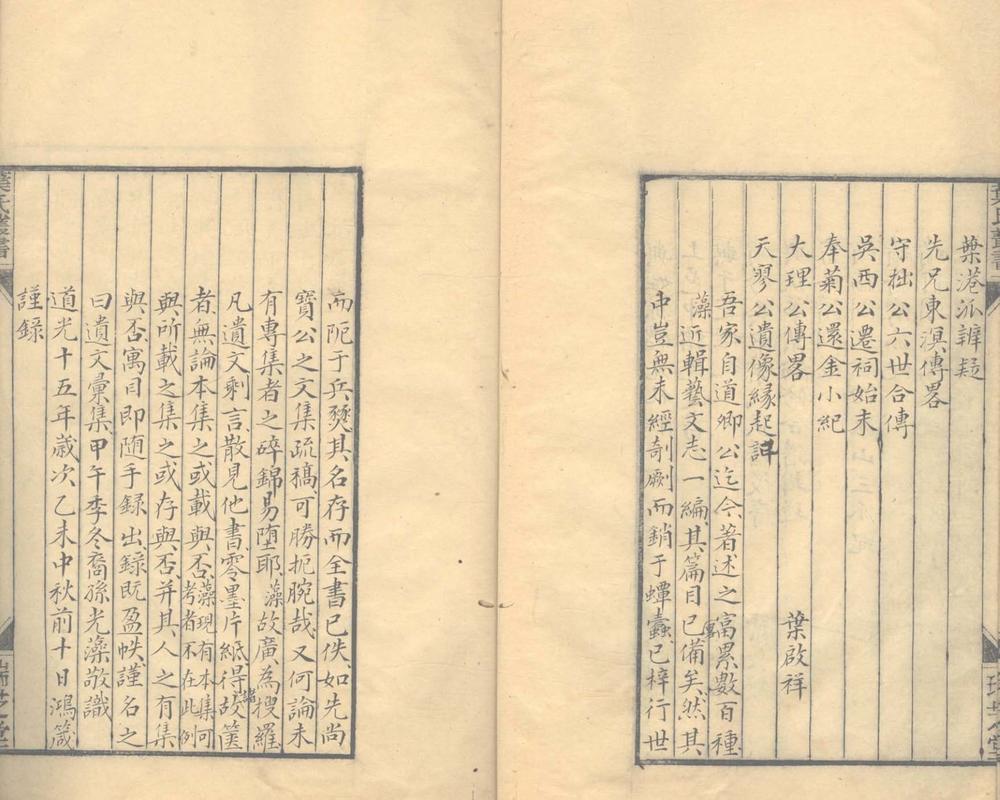 葉港派辨疑
先兄東溟傳畧
守拙公六世合傳
吳西公遷祠始末
奉菊公還金小紀
大理公傳畧 葉啟祥
天寥公遺像縁起
吾家自道卿公迄今著述之富累數百種
藻近輯藝文志一編其篇目已備矣然其
中豈無未經剞劂而銷于蟫蠹已梓行世
而阨于兵燹其名存而全書已佚如先尚
寶公之文集疏稿可勝扼腕哉又何論未
有專集者之碎錦易墮耶藻故廣為搜羅
凡遺文剩言散見他書零墨片紙得故篋
者無論本集之或載與否藻現有本集可考者不在此例
與所載之集之或存與否并其人之有集
與否寓目即随手録出録既盈帙謹名之
曰遺文彙集甲午季冬裔孫光藻敬識
道光十五年歲次乙未中秋前十日鴻箴
謹録
葉氏叢書